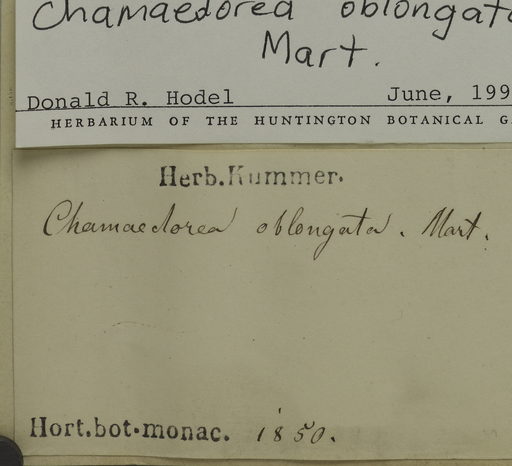 Chamaedorea oblongata
Mart.
Donald R. Hodel June, 199
HERBARIUM OF THE HUNTINGTON BOTANICAL G
Herb. Kummer.
Chamaedorea oblongata. Mart.
Hort.bot.monac. 1850.